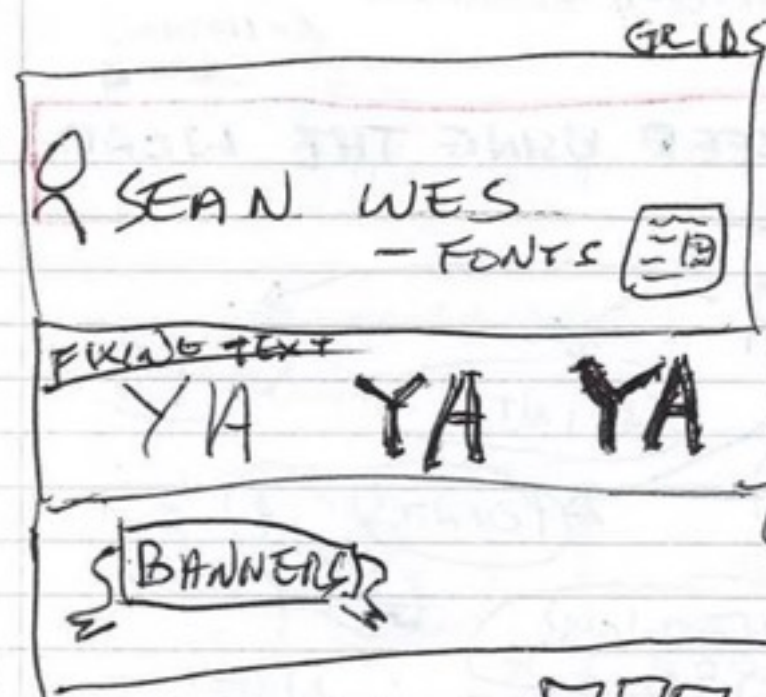 GRIDS
SEAN WES
- FONTS
FIXING TEXT
YA YA YA
BANNERS